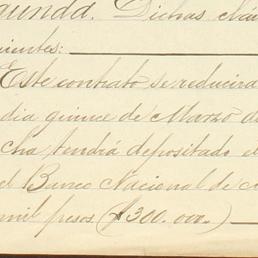 gunda. Dichas cláu
uientes:
Este contrato se reducira
dia quince de Marzo d
cha tendrá depositado e
el Banco Nacional de
mil pesos ($300.000.)